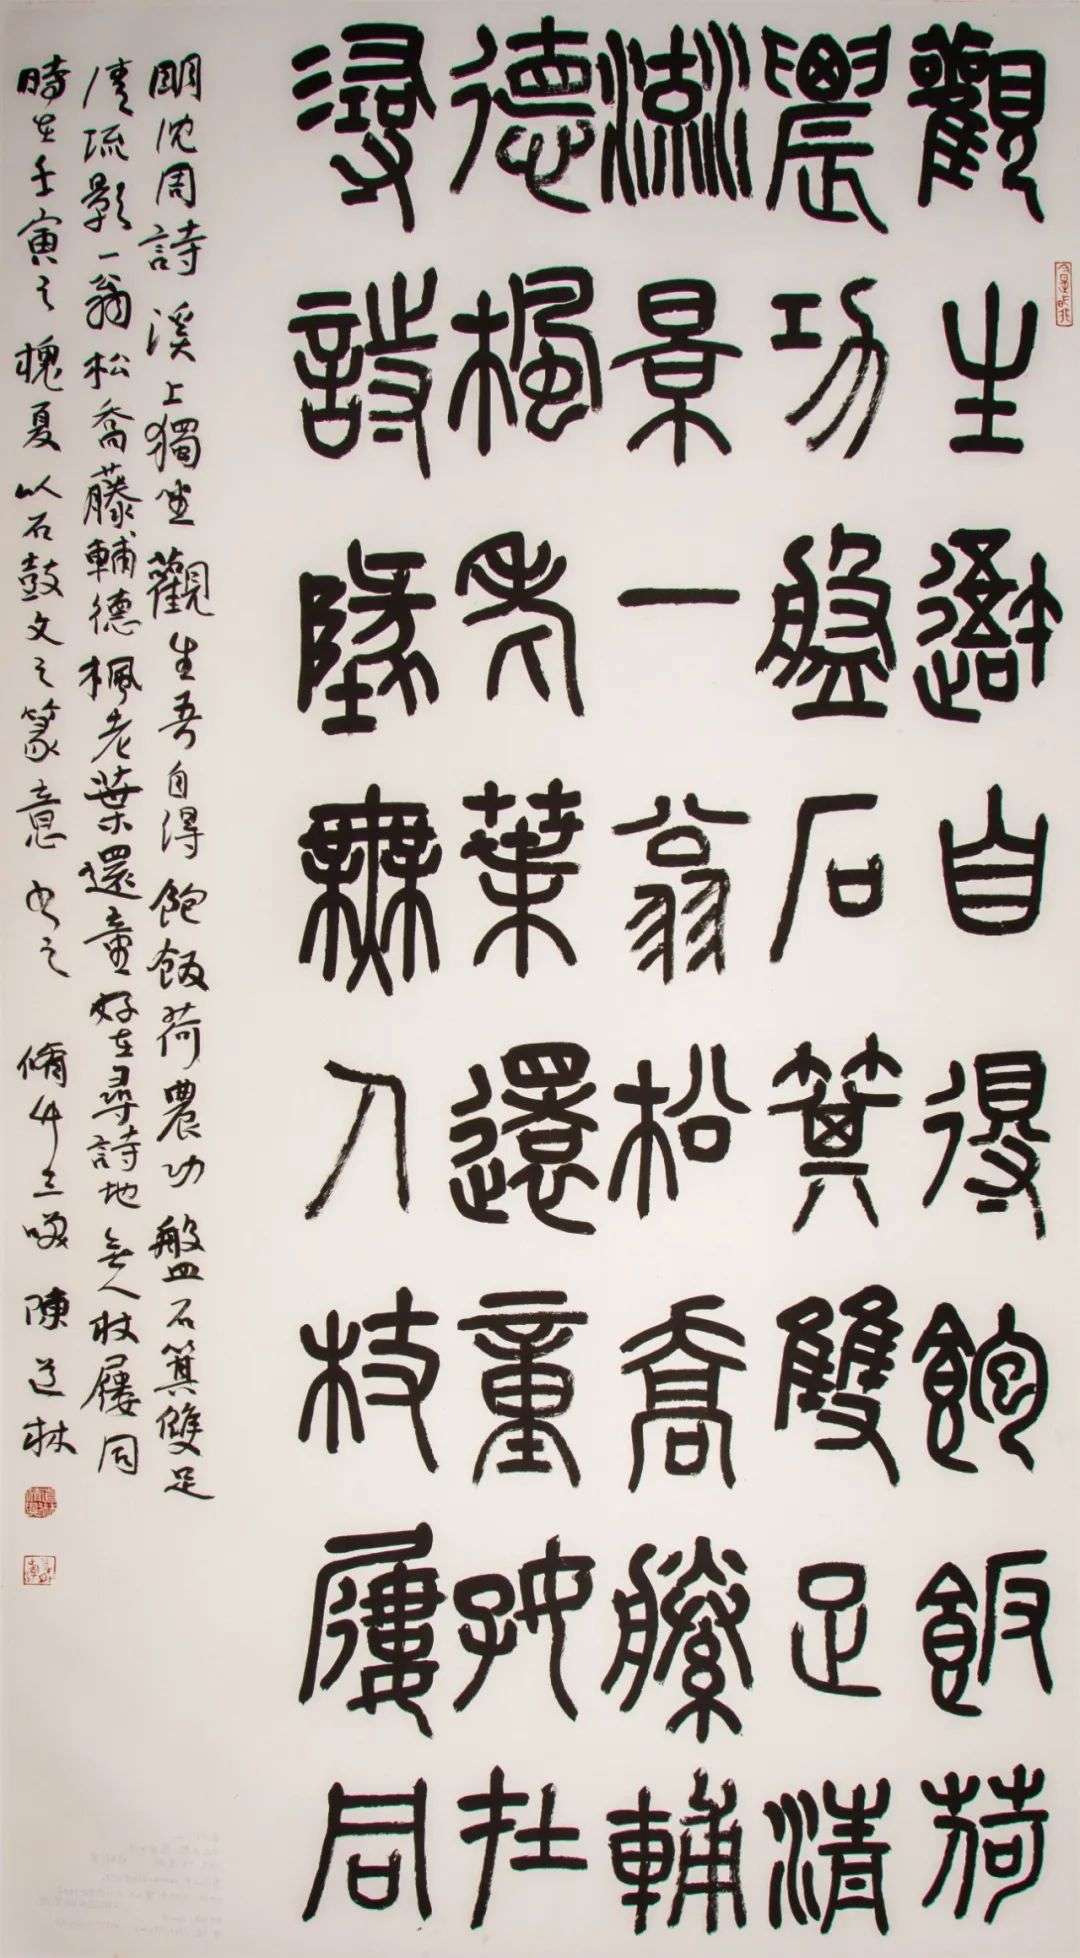 觀生遻自得飽飯荷
農功盤石箕雙足清
流景一翁松喬藤輔
德楓老葉還童好在
尋詩地無人杖屨同
明沈周詩 溪上獨坐 觀生吾自得飽飯荷農功盤石箕雙足
清流影一翁松喬藤輔德楓老葉還童好在尋詩地無人杖屨同
時在壬寅之槐夏以石鼓文之篆意書之 脩竹三 陳道林